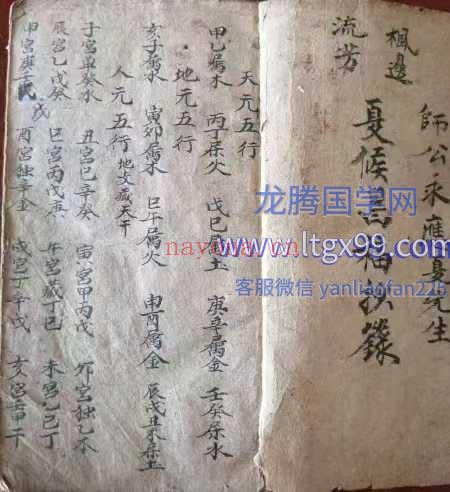 楓邊
流芳
師公永應㚆先生
夏候昌福抄錄
天元五行
甲乙属木 丙丁属火 戊己属土 庚辛属金 壬癸属水
地元五行
亥子属水 寅卯属木 巳午属火 申酉属金 辰戌丑未属土
人元五行 地支藏天干
子宮單癸水 丑宮己辛癸 寅宮甲丙戊 卯宮独乙木
辰宮乙戊癸 巳宮丙戊庚 午宮藏丁己 未宮乙己丁
申宮庚壬戊 酉宮独辛金 戌宮丁辛戊 亥宮壬甲干
龙腾国学网
www.ltgx99.com
客服微信 yanliaofan225
nayona.cn